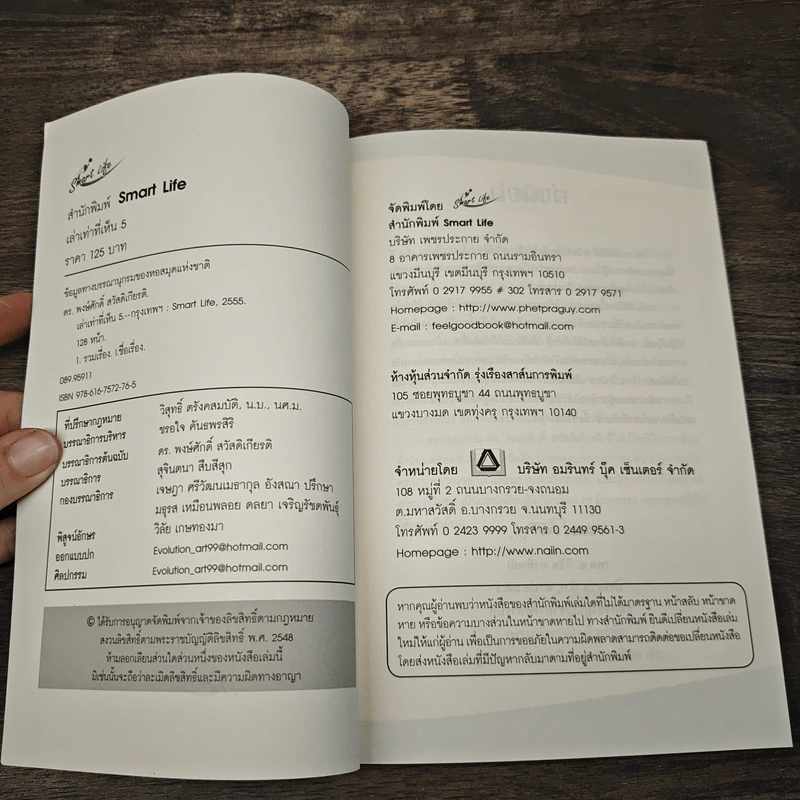 Smart Life
สำนักพิมพ์ Smart Life
เล่าเท่าที่เห็น 5
ราคา 125 บาท
ข้อมูลทางบรรณานุกรมของหอสมุดแห่งชาติ
ดร. พงษ์ศักดิ์ สวัสดิเกียรติ.
เล่าเท่าที่เห็น 5.--กรุงเทพฯ : Smart Life, 2555.
128 หน้า.
1. รวมเรื่อง. I.ชื่อเรื่อง.
089.95911
ISBN 978-616-7572-76-5
ที่ปรึกษากฎหมาย วิสุทธิ์ ตรังคสมบัติ, น.บ., นศ.ม.
บรรณาธิการบริหาร ขรอใจ คันธพรสิริ
บรรณาธิการต้นฉบับ ดร. พงษ์ศักดิ์ สวัสดิเกียรติ
บรรณาธิการ สุจินตนา สืบสีสุก
กองบรรณาธิการ เจษฎา ศรีวัฒนเมธากุล อังสณา ปรึกษา
มธุรส เหมือนพลอย ดลยา เจริญรัชตพันธุ์
พิสูจน์อักษร วิลัย เกษทองมา
ออกแบบปก Evolution_art99@hotmail.com
ศิลปกรรม Evolution_art99@hotmail.com
© ได้รับการอนุญาตจัดพิมพ์จากเจ้าของลิขสิทธิ์ตามกฎหมาย
สงวนลิขสิทธิ์ตามพระราชบัญญัติลิขสิทธิ์ พ.ศ. 2548
ห้ามลอกเลียนส่วนใดส่วนหนึ่งของหนังสือเล่มนี้
มิเช่นนั้นจะถือว่าละเมิดลิขสิทธิ์และมีความผิดทางอาญา
จัดพิมพ์โดย Smart Life
สำนักพิมพ์ Smart Life
บริษัท เพชรประกาย จำกัด
8 อาคารเพชรประกาย ถนนรามอินทรา
แขวงมีนบุรี เขตมีนบุรี กรุงเทพฯ 10510
โทรศัพท์ 0 2917 9955 # 302 โทรสาร 0 2917 9571
Homepage : http://www.phetpraguy.com
E-mail : feelgoodbook@hotmail.com
ห้างหุ้นส่วนจำกัด รุ่งเรืองสาส์นการพิมพ์
105 ซอยพุทธบูชา 44 ถนนพุทธบูชา
แขวงบางมด เขตทุ่งครุ กรุงเทพฯ 10140
จำหน่ายโดย บริษัท อมรินทร์ บุ๊ค เซ็นเตอร์ จำกัด
108 หมู่ที่ 2 ถนนบางกรวย-จงถนอม
ต.มหาสวัสดิ์ อ.บางกรวย จ.นนทบุรี 11130
โทรศัพท์ 0 2423 9999 โทรสาร 0 2449 9561-3
Homepage : http://www.naiin.com
หากคุณผู้อ่านพบว่าหนังสือของสำนักพิมพ์เล่มใดที่ไม่ได้มาตรฐาน หน้าสลับ หน้าขาด
หาย หรือข้อความบางส่วนในหน้าขาดหายไป ทางสำนักพิมพ์ ยินดีเปลี่ยนหนังสือเล่ม
ใหม่ให้แก่ผู้อ่าน เพื่อเป็นการขออภัยในความผิดพลาดสามารถติดต่อขอเปลี่ยนหนังสือ
โดยส่งหนังสือเล่มที่มีปัญหากลับมาตามที่อยู่สำนักพิมพ์